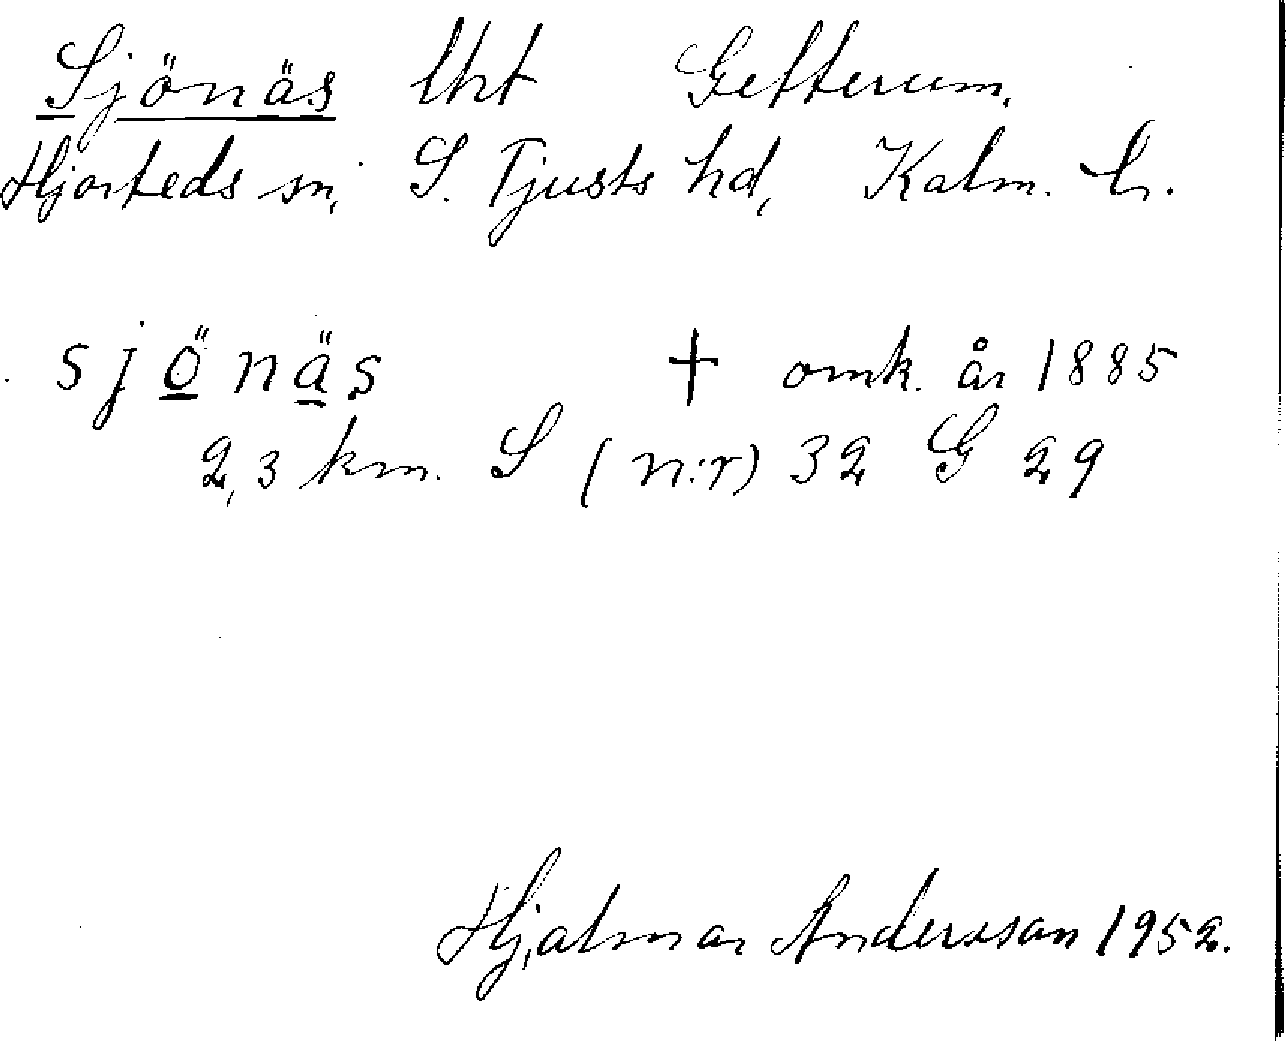 Sjönäs lht Gefterum,
Hjorteds sn, S. Tjusts hd, Kalm. l.
sjönäs † omk. år 1885
2,3 km. S (n:r) 32 G 29
Hjalmar Andersson 1952.